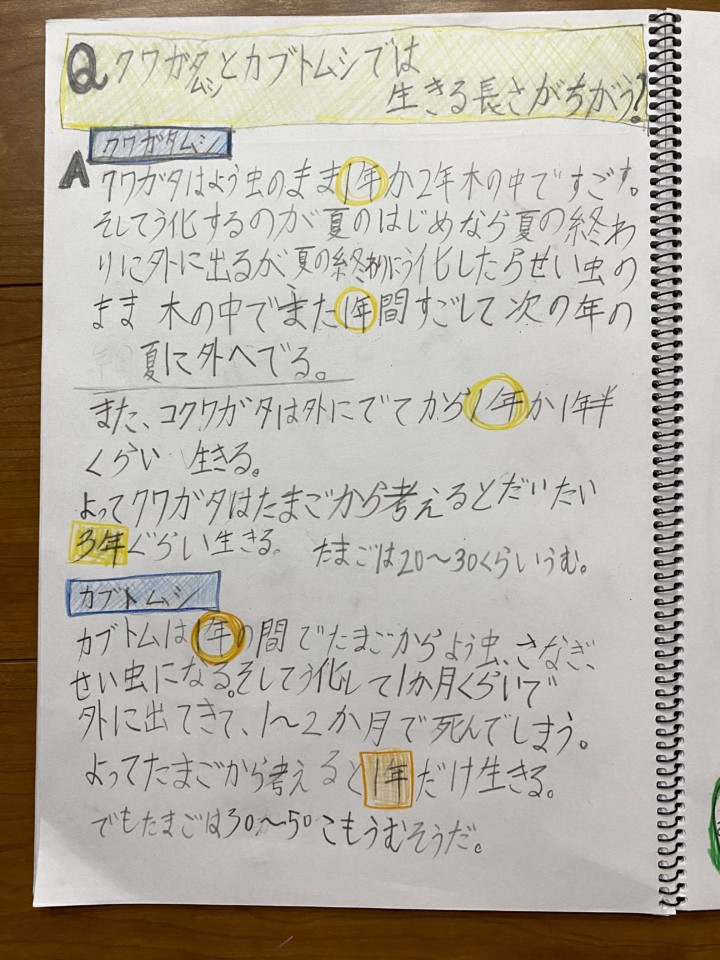 Qクワガタムシとカブトムシでは
生きる長さがちがう?
クワガタムシ
A クワガタはよう虫のまま1年か2年木の中ですごす。
そしてう化するのが夏のはじめなら夏の終わ
りに外に出るが夏の終わりにう化したらせい虫の
まま木の中でまた1年間すごして次の年の
夏に外へでる。
また、コクワガタは外にでてから1年か1年半
くらい生きる。
よってクワガタはたまごから考えるとだいたい
3年ぐらい生きる。 たまごは20〜30くらいうむ。
カブトムシ
カブトムは1年の間でたまごからよう虫、さなぎ、
せい虫になる。そしてう化して1か月くらいで
外に出てきて、1〜2か月で死んでしまう。
よってたまごから考えると1年だけ生きる。
でもたまごは30〜50こもうむそうだ。